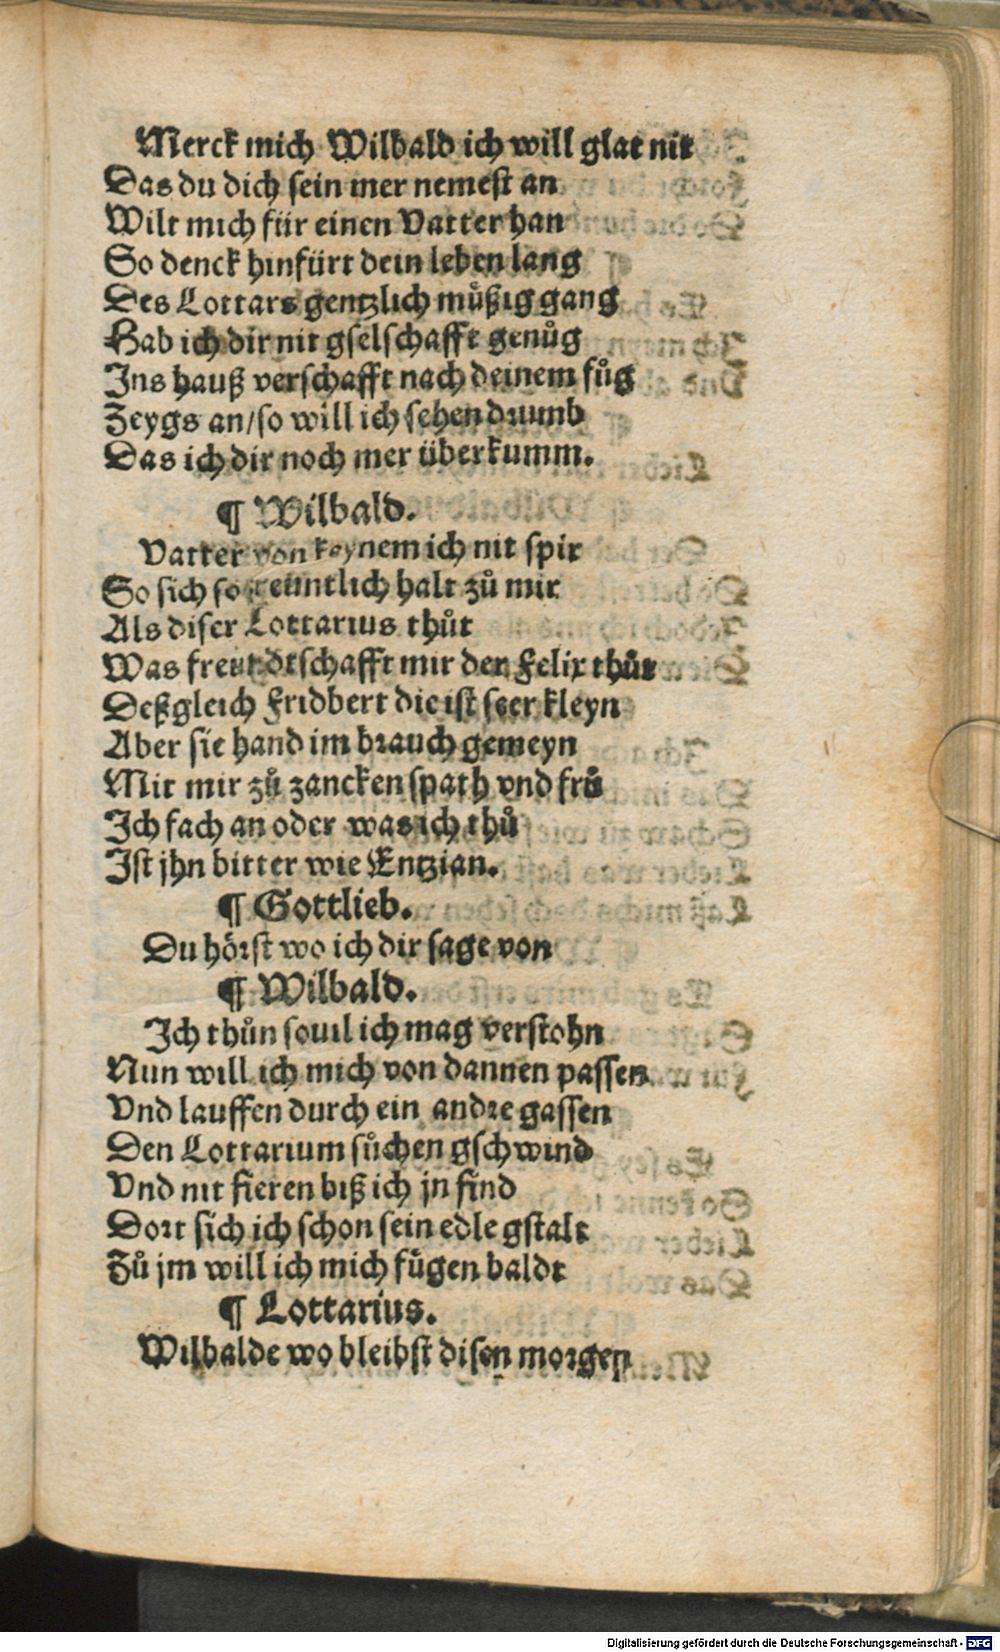 Merck mich Wilbald ich will glat nit
Das du dich sein mer nemest an
Wilt mich für einen Vatter han
So denck hinfürt dein leben lang
Des Lottars gentzlich můßig gang
Hab ich dir nit gselschafft genůg
Ins hauß verschafft nach deinem fůg
Zeygs an/so will ich sehen drumb
Das ich dir noch mer überkumm.
¶ Wilbald.
Vatter von keynem ich nit spir
So sich so freuntlich halt zů mir
Als diser Lottarius thůt
Was freundtschafft mir der Felix thůt
Deßgleich Fridbert die ist seer kleyn
Aber sie hand im brauch gemeyn
Mit mir zů zancken spath vnd frů
Ich fach an oder was ich thů
Ist jhn bitter wie Entzian.
¶ Gottlieb.
Du hörst wo ich dir sage von
¶ Wilbald.
Ich thůn souil ich mag verstohn
Nun will ich mich von dannen passen
Vnd lauffen durch ein andre gassen
Den Lottarium sůchen gschwind
Vnd nit fieren biß ich jn find
Dort sich ich schon sein edle gstalt
Zů jm will ich mich fůgen baldt
¶ Lottarius.
Wilbalde wo bleibst disen morgen
Digitalisierung gefördert durch die Deutsche Forschungsgemeinschaft - DFG